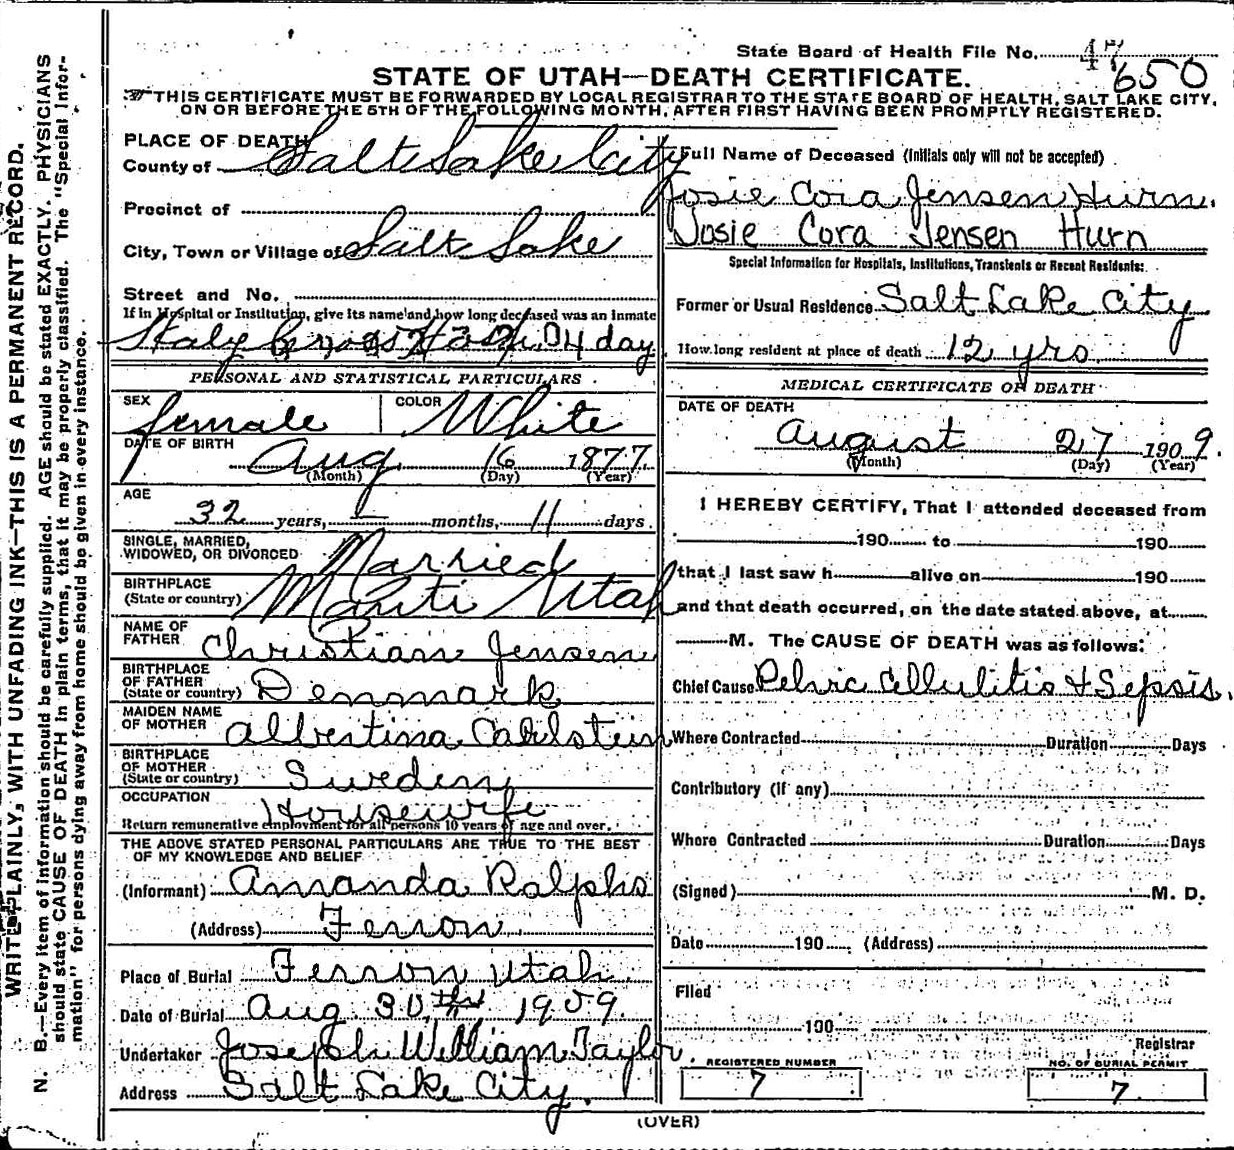 State Board of Health File No. 47 650
STATE OF UTAH—DEATH CERTIFICATE.
THIS CERTIFICATE MUST BE FORWARDED BY LOCAL REGISTRAR TO THE STATE BOARD OF HEALTH, SALT LAKE CITY,
ON OR BEFORE THE 5TH OF THE FOLLOWING MONTH, AFTER FIRST HAVING BEEN PROMPTLY REGISTERED.
WRITE PLAINLY, WITH UNFADING INK—THIS IS A PERMANENT RECORD.
N. B.—Every item of information should be carefully supplied. AGE should be stated EXACTLY. PHYSICIANS
should state CAUSE OF DEATH in plain terms, that it may be properly classified. The "Special Infor-
mation" for persons dying away from home should be given in every instance.
PLACE OF DEATH
County of Salt Lake City
Precinct of
City, Town or Village of Salt Lake
Street and No.
If in Hospital or Institution, give its name and how long deceased was an inmate
4 day
PERSONAL AND STATISTICAL PARTICULARS
SEX female COLOR White
DATE OF BIRTH Aug 16 1877
(Month) (Day) (Year)
AGE
32 years, — months, 11 days
SINGLE, MARRIED,
WIDOWED, OR DIVORCED Married
BIRTHPLACE
(State or country) Manti Utah
NAME OF
FATHER Christian Jensen
BIRTHPLACE
OF FATHER
(State or country) Denmark
MAIDEN NAME
OF MOTHER Albertina Carlstein
BIRTHPLACE
OF MOTHER
(State or country) Sweden
OCCUPATION Housewife
Return remunerative employment for all persons 10 years of age and over.
THE ABOVE STATED PERSONAL PARTICULARS ARE TRUE TO THE BEST
OF MY KNOWLEDGE AND BELIEF
(Informant) Amanda Ralphs
(Address) Ferron
Place of Burial Ferron Utah
Date of Burial Aug 30th 1909
Undertaker Joseph William Taylor.
Address Salt Lake City.
Full Name of Deceased (Initials only will not be accepted)
Josie Cora Jensen Hurn.
Josie Cora Jensen Hurn
Special Information for Hospitals, Institutions, Transients or Recent Residents:
Former or Usual Residence Salt Lake City
How long resident at place of death 12 yrs.
MEDICAL CERTIFICATE OF DEATH
DATE OF DEATH
August 27 1909.
(Month) (Day) (Year)
I HEREBY CERTIFY, That I attended deceased from
190 to 190
that I last saw h alive on 190
and that death occurred, on the date stated above, at
M. The CAUSE OF DEATH was as follows:
Chief Cause Pelvic Cellulitis & Sepsis.
Where Contracted Duration Days
Contributory (if any)
Where Contracted Duration Days
(Signed) M. D.
Date 190 (Address)
Filed
190
Registrar
REGISTERED NUMBER
7
NO. OF BURIAL PERMIT
7
(OVER)